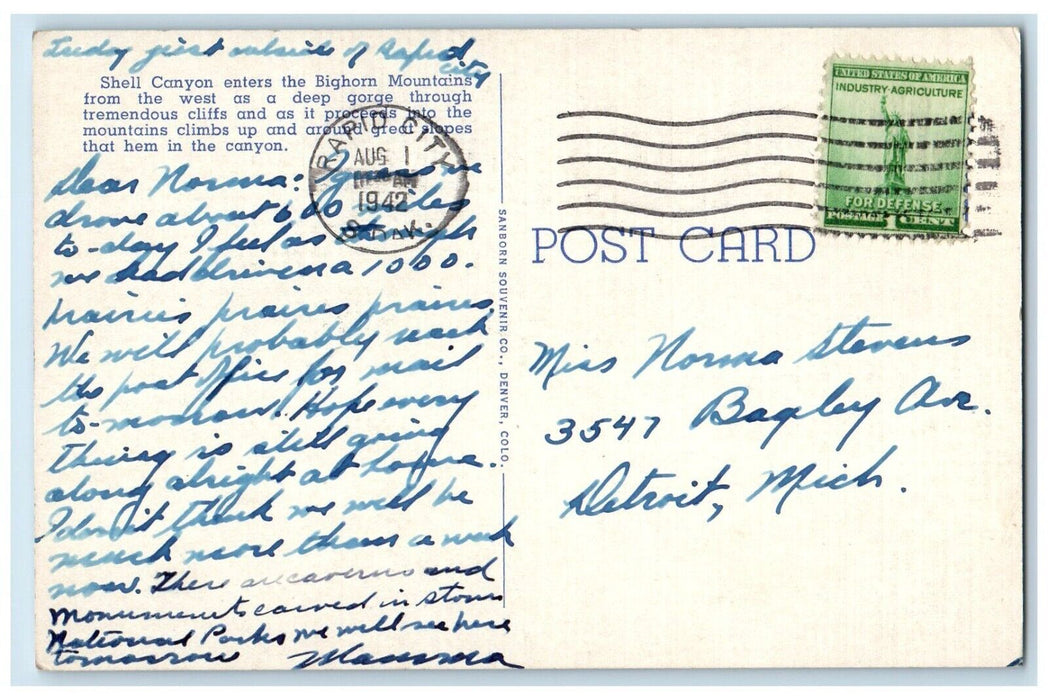 just outside of Rapid
City
Shell Canyon enters the Bighorn Mountains
from the west as a deep gorge through
tremendous cliffs and as it proceeds into the
mountains climbs up and around great slopes
that hem in the canyon.
Dear Norma: I guess we
drove about 600 miles
to-day I feel as though
we had driven a 1000.
prairies prairies prairies.
We will probably reach
the post office for mail
to-morrow. Hope every
thing is still going
along alright at home.
I don't think we will be
much more than a week
now. There are caverns and
monuments carved in stone
National Parks we will see here
tomorrow Mamma
RAPID CITY
AUG 1
AM
1942
S. DAK.
SANBORN SOUVENIR CO., DENVER, COLO.
UNITED STATES OF AMERICA
INDUSTRY-AGRICULTURE
FOR DEFENSE
POSTAGE 1 CENT
POST CARD
Miss Norma Stevens
3547 Bagley Ave.
Detroit, Mich.